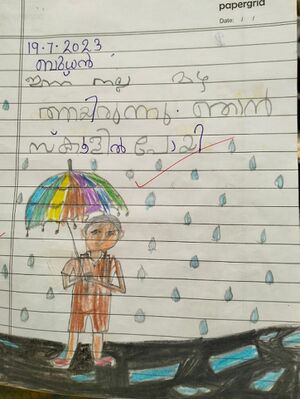 papergrid
Date: / /
19.7.2023
ബുധൻ
ഇന്ന നല്ല മഴ
ആയിരുന്നു. ഞാൻ
സ്കൂളിൽ പോയി